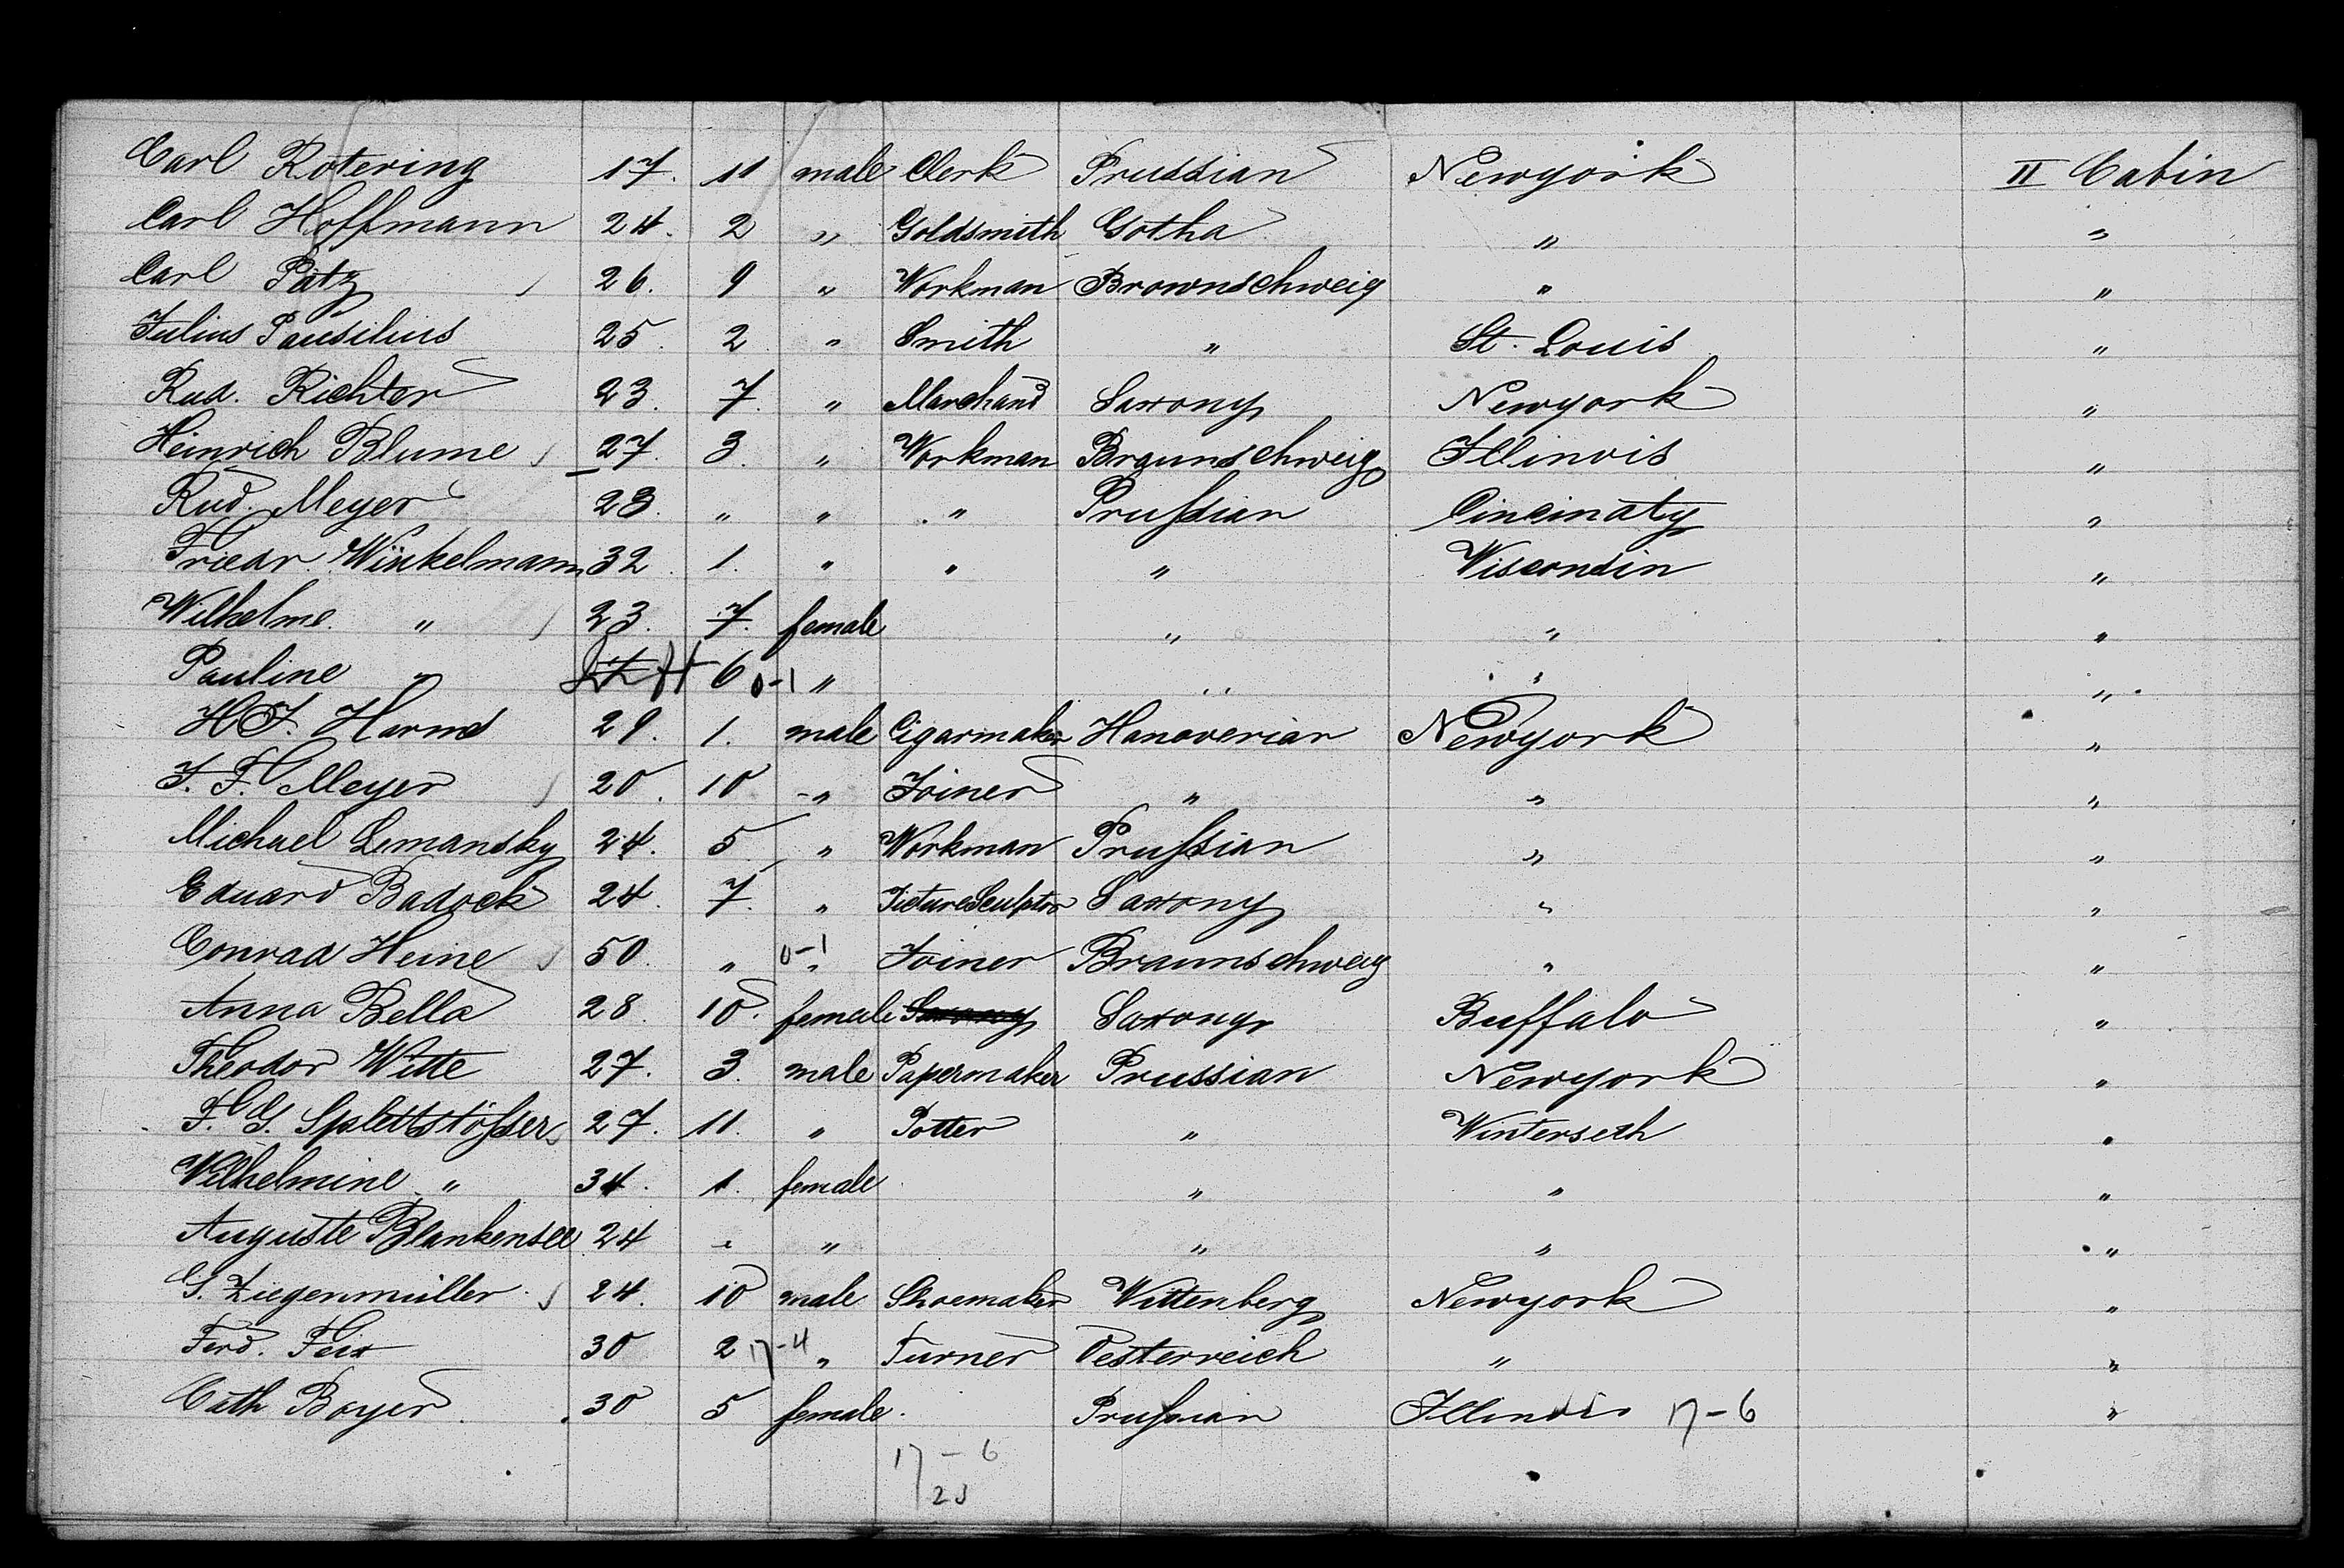 Carl Rotering 17. 11 male Clerk Prussian Newyork II Cabin
Carl Hoffmann 24. 2 " Goldsmith Gotha " "
Carl Pätz 26. 9 " Workman Brownschweig " "
Julius Pausilius 25. 2 " Smith " St. Louis "
Rud. Richter 23. 7. " Marchand Saxony Newyork "
Heinrich Blume 27. 3. " Workman Braunschweig Illinois "
Rud. Meyer 23. " " " Prussian Cincinaty "
Friedr. Winkelmann 32. 1. " " " Wisconsin "
Wilhelme. " 23. 7. female " " "
Pauline " 6 0-1 " " " "
H. Harms 29. 1. male Cigarmaker Hanoverian Newyork "
J. F. Meyer 20. 10 " Joiner " " "
Michael Lemansky 24. 5 " Workman Prussian " "
Eduard Badock 24. 7. " PictureSculptor Saxony " "
Conrad Heine 50. " 0-1 " Joiner Braunschweig " "
Anna Bella 28. 10. female Saxony Saxony Buffalo "
Theodor Witte 27. 3. male Papermaker Prussian Newyork "
F. G. Splettstösser 27. 11. " Potter " Winterseth "
Wilhelmine " 34. 1. female " " "
Auguste Blankensee 24 " " " " "
G. Ziegenmüller 24. 10 male Shoemaker Wittenberg Newyork "
Ferd. Feix 30 2 17-4 " Turner Oesterreich " "
Cath Boyer 30 5 female. Prussian Illinois 17-6 "
17-6
23